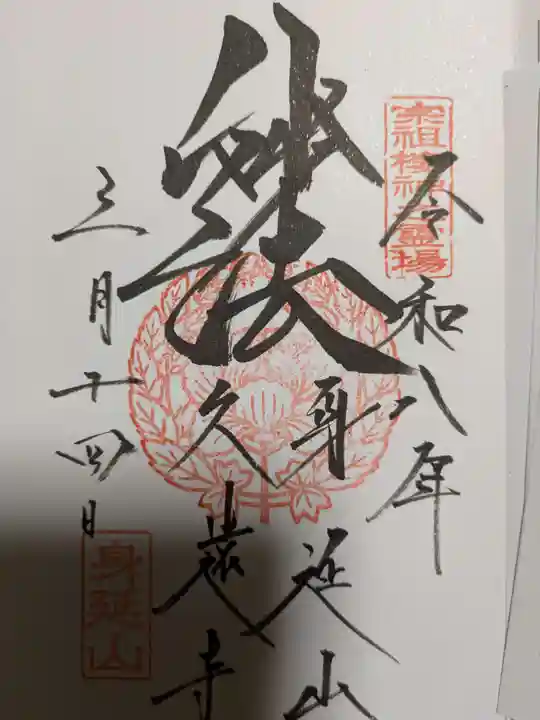 宗祖棲神之霊場
令和八年
妙法
身延山
久遠寺
三月十四日
身延山